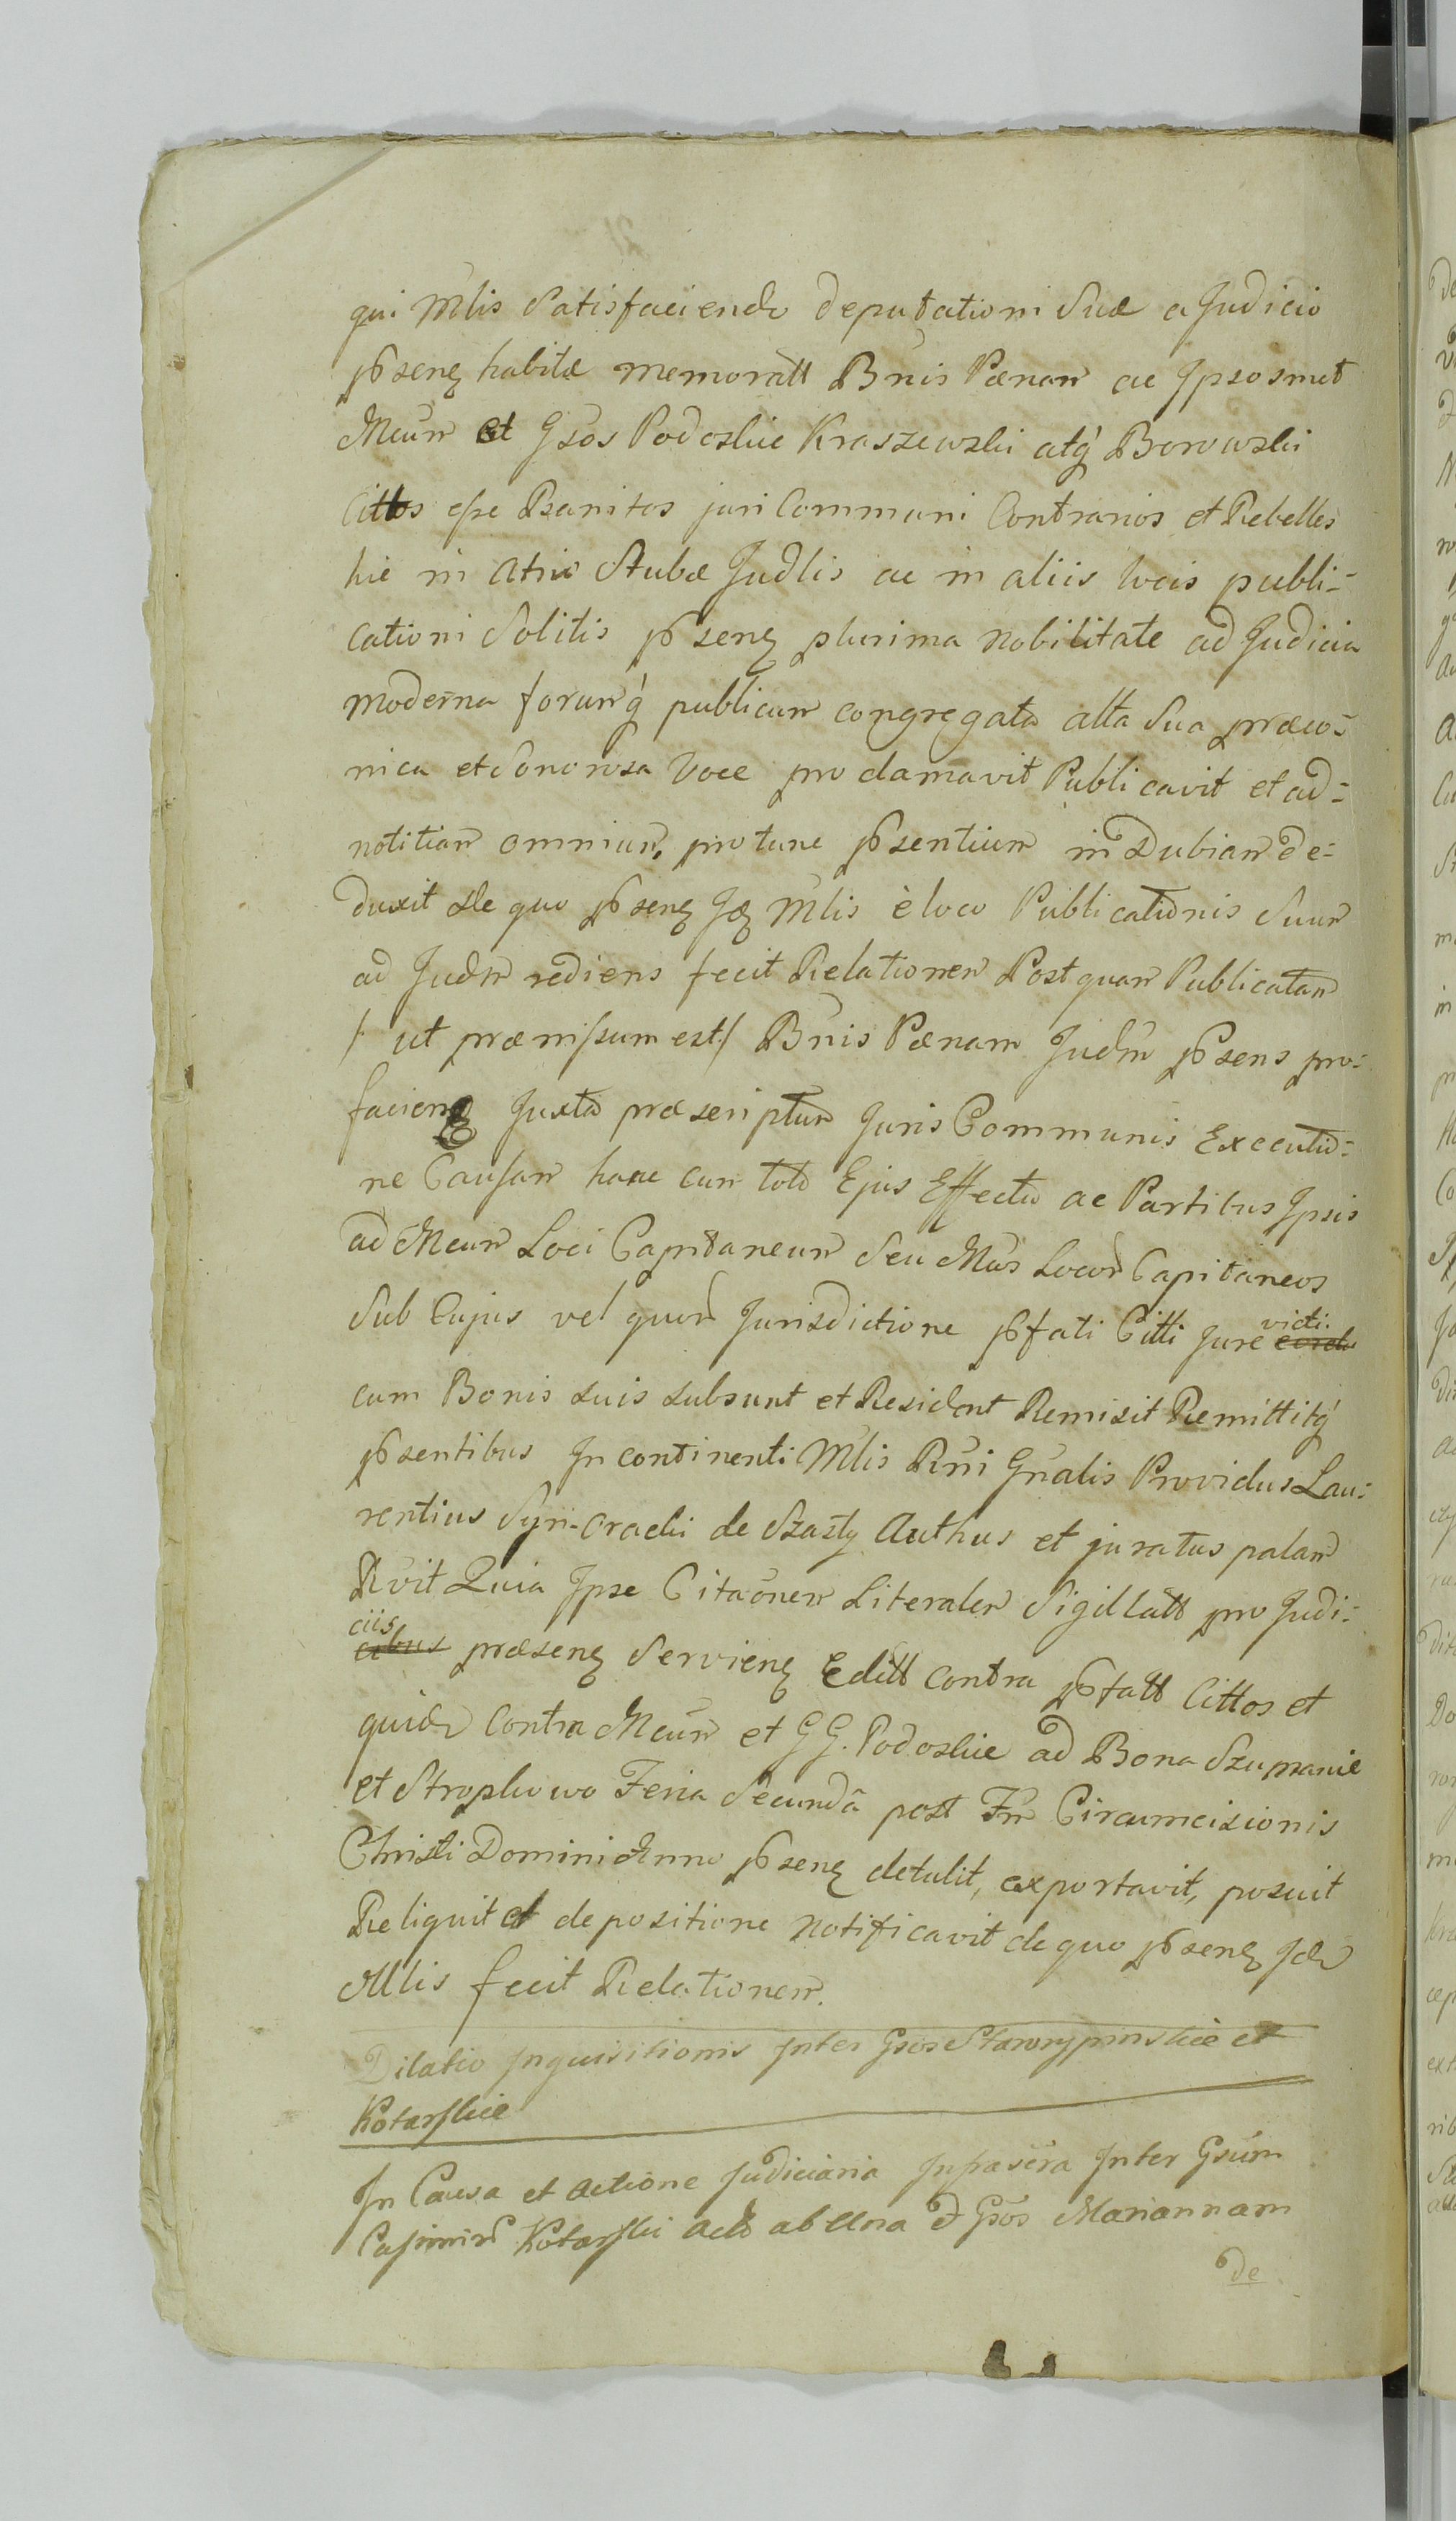 qui Mlis Satisfaciendo deputationi Suæ a Judicio
pñseng habitæ memoratt Bnis Pænam ac Ipsosmet
Mcum et Gsos Podoskie Kraszewski atq Borowski
Cittos esse Banitos juri Communi Contrarios et Rebelles
hic in atrio Stubæ Judlis ac in aliis locis publi-
cationi Solitis pñseng plurima nobilitate ad Judicia
moderna forumq publicum congregata alta Sua præco-
nica et Sonorosa Voce proclamavit Publicavit et ad-
notitiam omnium, protunc pñsentium indubiam de-
duxit De quo pñseng Id Mlis è loco Publicationis Suum
ad Judm rediens fecit Relationem Postquam Publicatam
/ ut præmissum est / Bnis Pænam Judm pñsens pro-
facieng Juxta præscriptum Juris Communis Executio-
ne Causam hanc cum toto Ejus Effectu ac Partibus Ipsis
ad Mcum Loci Capitaneum Seu Mcos Locor Capitaneos
Sub Cujus vel quor Jurisdictione pñfati Citti Jure victi
cum Bonis suis subsunt et Resident Remisit Remittitq
pñsentibus In continenti Mlis Rni Gnalis Providus Lau-
rentius Syn- de Szasty Authus et juratus palam
Rvit Quia Ipse Citaonem Literalem Sigillatt pro Judi-
ciis præseng Servieng Editt contra pñfatt Cittos et
quidem contra Mcum et GG. Podoskie ad Bona Szumanie
et Stropkowo Feria Secunda post Fm Circumcisionis
Christi Domini Anno pñseng detulit, exportavit, posuit
Reliquit et depositione notificavit de quo pñseng Idem
Mlis fecit Relationem.
Dilatio Inquisitionis Inter Gsos Starorypinskie et
Kotarskie
In Causa et actione Judiciaria Infrascra Inter Gsum
Casimir Kotarski act ab Una & Gsos Mariannam
de